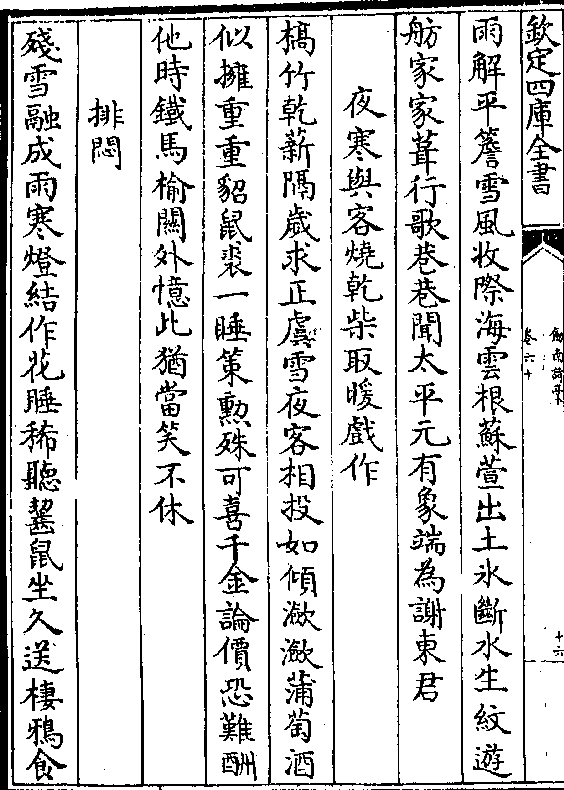 欽定四庫全書
劍南詩藁
卷六十
十六
雨解平簷雪風收際海雲根蘇萱出土氷斷水生紋遊
舫家家葺行歌巷巷聞太平元有象端為謝東君
夜寒與客燒乾柴取暖戲作
槁竹乾薪隔歲求正虞雪夜客相投如傾潋潋蒲萄酒
似擁重重貂鼠裘一睡策勲殊可喜千金論價恐難酬
他時鐵馬榆關外憶此猶當笑不休
排悶
殘雪融成雨寒燈結作花睡稀聽齧鼠坐久送棲鴉食